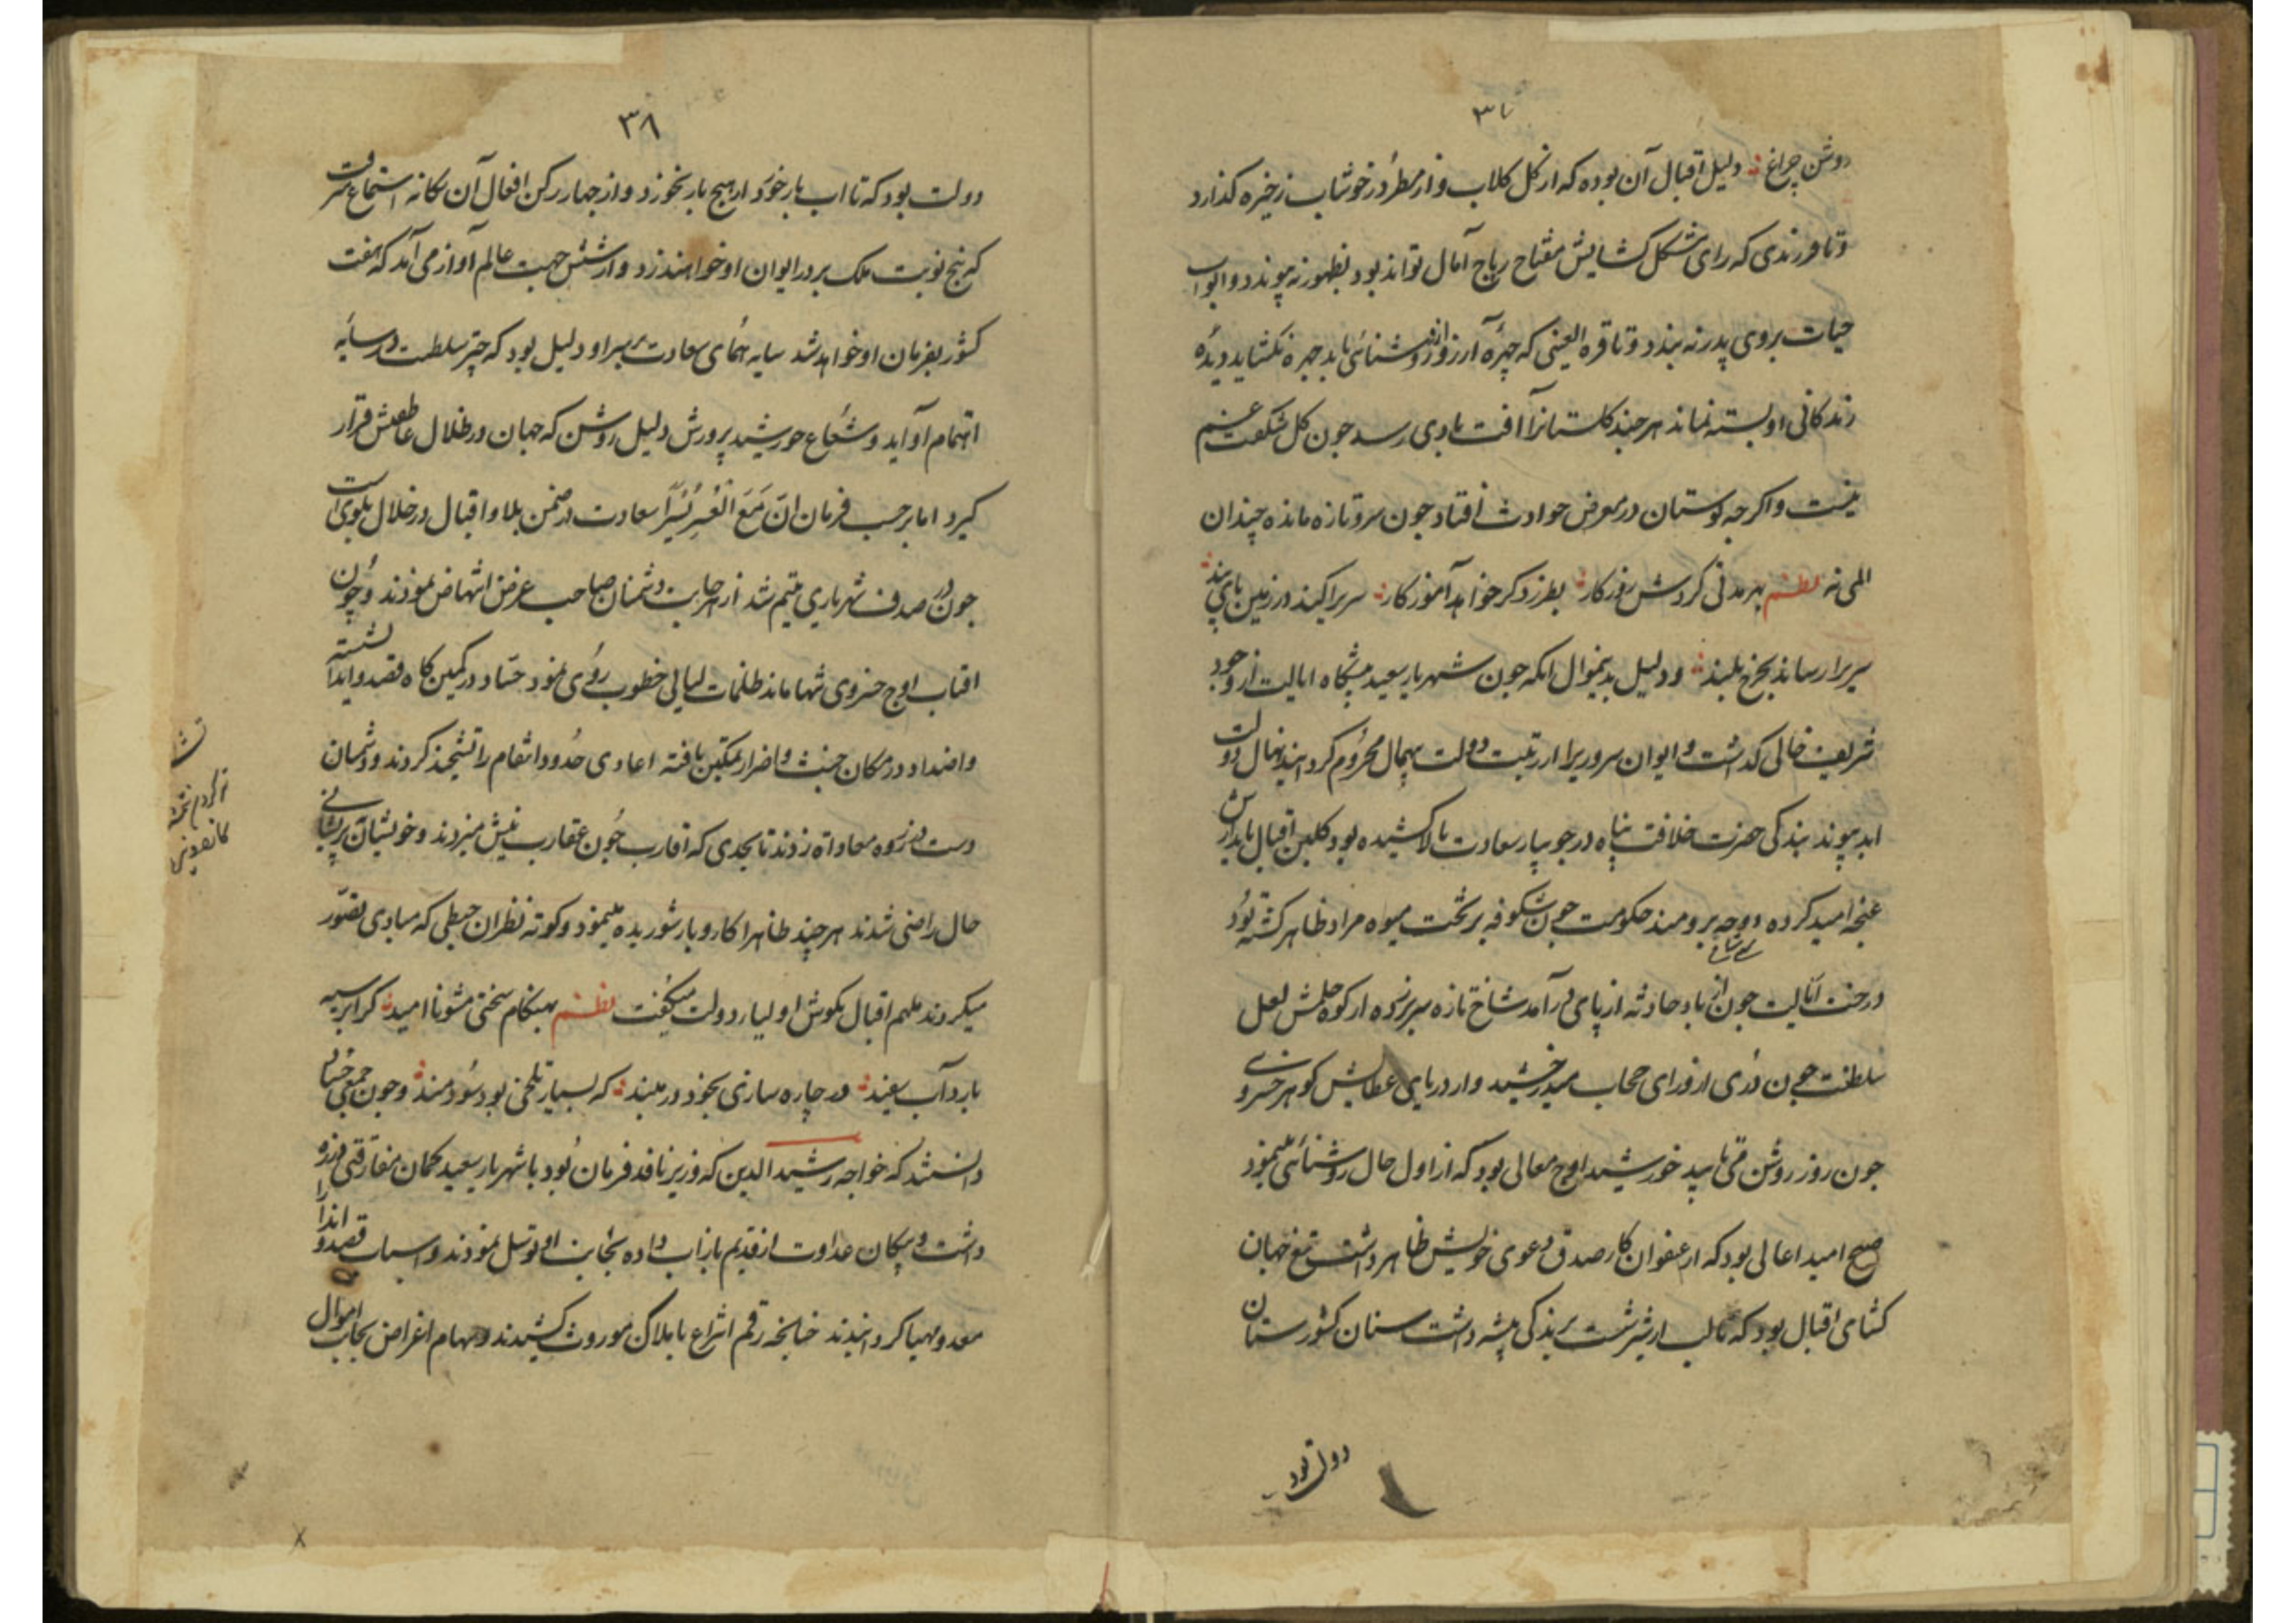 ۳۷
روشن چراغ ؞ دلیل اقبال آن بوده که از کل کلاب و از مطر در خوشاب زخیره کذارد
و تا فرزندی که رای مشکل کشایش مفتاح رتاج آمال تواند بود بظهور نه پیوندد و ابواب
حیات بروی پدر نه بندد و تا قره العینی که چهرهٔ آرزو ازو روشنائی یابد چهره نکشاید دیدهٔ
زندکانی او بسته نماند هر چند کلستانرا آفت بادی رسد جون کل شکفت غم
نیست و اکر جه بوستان در معرض حوادث افتاد جون سرو تازه مانده چندان
المی نه نظم بهر مدتی کردش روزکار ؞ بطرز دکر خواهد آموزکار ؞ سریرا کند در زمین پای بند ؞
سریرا رساند بچرخ بلند ؞ و دلیل بدینموال انکه جون شهریار سعید پیشکاه ایالت از وجود
شریف خالی کذاشت و ایوان سروریرا از رتبت دولت بیهمال محروم کردانید نهال دولت
ابد پیوند بندکی حضرت خلافت پناه در جویبار سعادت بالا کشیده بود کلبن اقبال بایدارش
غنجه امید کرده دوحه برومند حکومت جون شکوفه بریخت میوه مراد ظاهر کشته بود
درخت ایالت جون از باد حادثه از پای در آمد شاخ تازه سر بر زده از کوه حلمش لعل
سلطنت جون دری از ورای حجاب میدرخشید و از دریای عطایش کوهر خسروی
جون روز روشن می تابید خورشید اوج معالی بود که از اول حال روشنائی مینمود
صبح امید اعالی بود که از عنفوان کار صدق دعوی خویش ظاهر داشت تیغ جهان
کشای اقبال بود که تالب از شربت برندکی پیشه داشت سنان کشورستان
دولت بود
۳۸
دولت بود که تا اب بار خورد از هیج بار نخورد و از جهار رکن افعال آن یکانه استماع میرفت
که پنج نوبت ملک بر در ایوان او خواهند زد و از شش جهت عالم آواز می آمد که هفت
کشور بفرمان او خواهد شد سایه همای سعادت بر سر او دلیل بود که چتر سلطنت در سایه
اهتمام او آید و شعاع خورشید پرورش دلیل روشن که جهان در ظلال عاطفتش قرار
کیرد اما بر حسب فرمان ان مع العسر یسرا سعادت در ضمن بلا و اقبال در خلال بلوی است
جون در صدف شهریاری یتیم شد از هر جانب دشمنان صاحب غرض انتهاض نمودند و جون
افتاب اوج خسروی تنها ماند ظلمات لیالی خطوب روی نمود حساد در کمین کاه قصد و ایذا نشسته
و اضداد در مکان خبث و اضرار تمکین یافته اعادی حدود انتقام را تشحیذ کردند و دشمنان
دست در زوه معاداة زدند تا بحدی که اقارب جون عقارب نیش میزدند و خویشان بپریشانی
حال راضی شدند هر چند ظاهرا کار و بار شوریده مینمود و کوته نظران حیطی که مبادی تصور
میکردند ملهم اقبال بکوش اولیاء دولت میکفت نظم بهنکام سختی مشو نا امید ؞ کز ابر سیه
بارد آب سفید ؞ در چاره سازی بخود در مبند ؞ که بسیار تلخی بود سودمند ؞ و جون جمعی خسان
دانستند که خواجه رشید الدین که وزیر نافذ فرمان بود با شهریار سعید بکمان مفارقتی در زه
داشت و پیکان عداوت از قدیم باز آب داده بجانب او توسل نمودند و اسباب قصد و ایذا را
معد و مهیا کردانیدند چنانجه رقم انتزاع با ملاک موروث کشیدند و سهام اغراض بجانب اموال